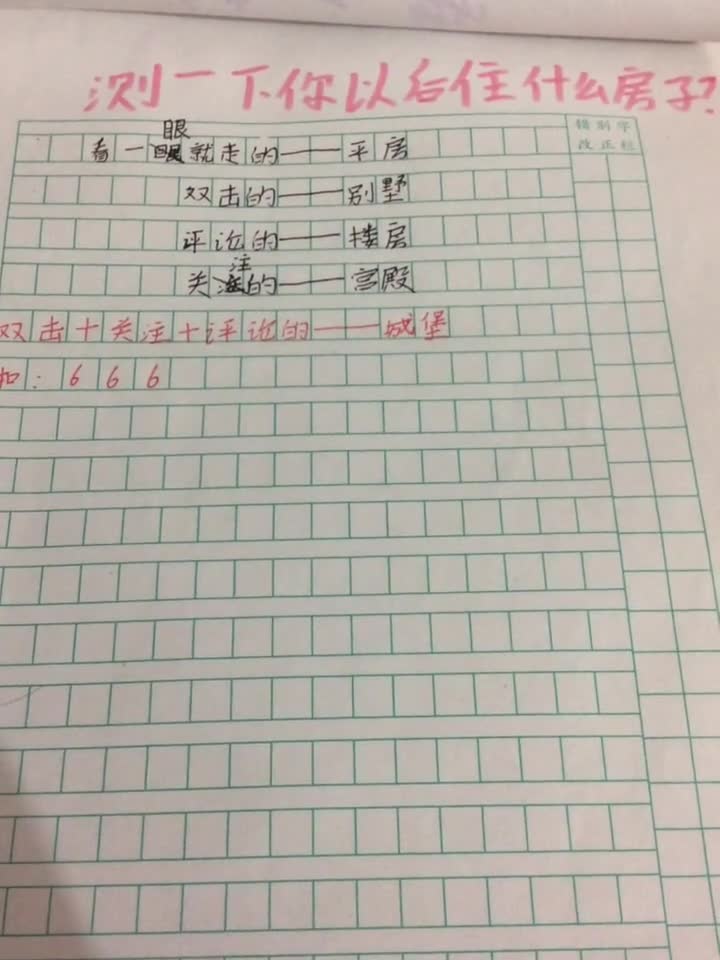 测一下你以后住什么房子?
错别字
改正栏
看一眼就走的——平房
双击的——别墅
评论的——楼房
关注的——宫殿
双击+关注+评论的——城堡
如:666